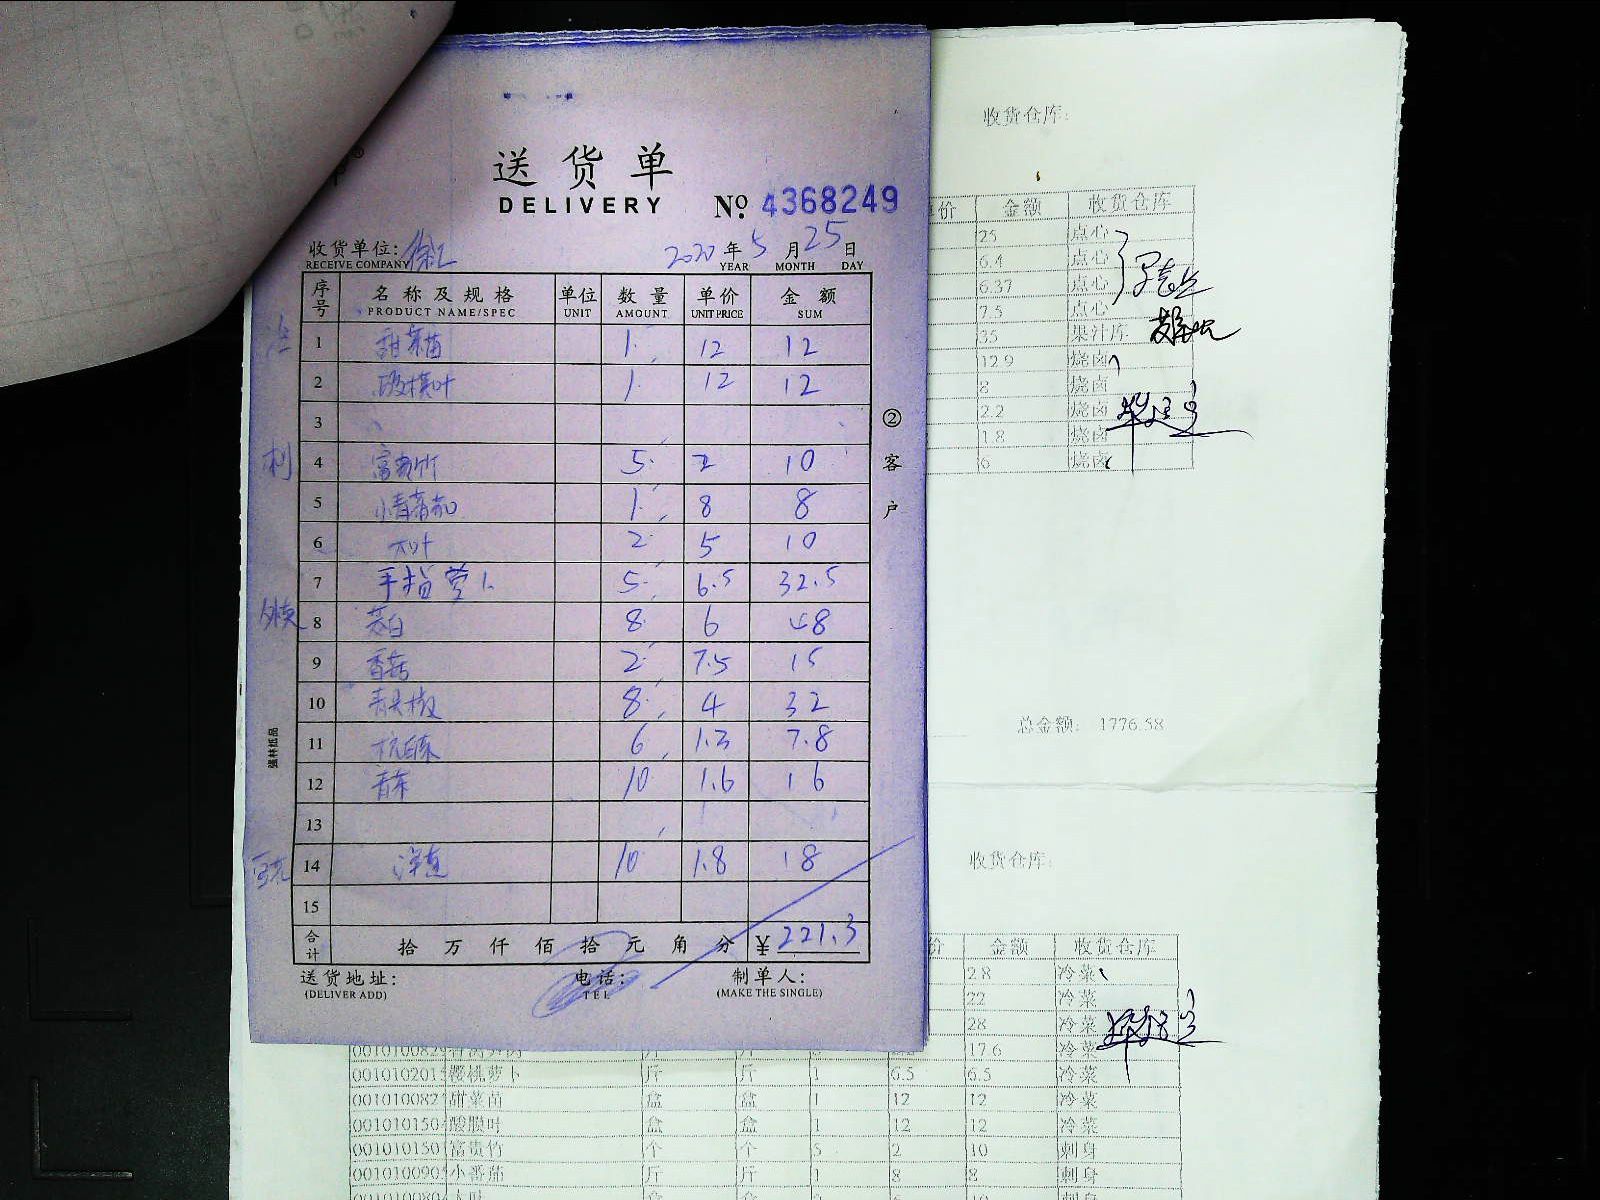 送货单
DELIVERY
№ 4368249
收货单位:徐汇 2020年5月25日
RECEIVE COMPANY YEAR MONTH DAY
序号 名称及规格 单位 数量 单价 金额
PRODUCT NAME/SPEC UNIT AMOUNT UNIT PRICE SUM
1 甜菜苗 1 12 12
2 酸模叶 1 12 12
3
刺 4 富贵竹 5 2 10
5 小青番茄 1 8 8
6 大叶 2 5 10
7 手指萝卜 5 6.5 32.5
8 茭白 8 6 48
9 香菇 2 7.5 15
10 青尖椒 8 4 32
11 杭白菜 6 1.3 7.8
12 青菜 10 1.6 16
13
14 洋葱 10 1.8 18
15
合计 拾万仟佰拾元角分 ¥221.3
送货地址: 电话: 制单人:
(DELIVER ADD) TEL (MAKE THE SINGLE)
②客户
强林纸品
收货仓库:
价 金额 收货仓库
25 点心
6.4 点心
6.37 点心
7.5 点心
35 果汁库
12.9 烧卤
8 烧卤
2.2 烧卤
1.8 烧卤
6 烧卤
总金额: 1776.58
收货仓库:
价 金额 收货仓库
28 冷菜
22 冷菜
28 冷菜
17.6 冷菜
001010201 樱桃萝卜 斤 斤 1 6.5 6.5 冷菜
001010082 甜菜苗 盒 盒 1 12 12 冷菜
001010150 酸膜叶 盒 盒 1 12 12 冷菜
001010150 富贵竹 个 个 5 2 10 刺身
001010090 小番茄 斤 斤 1 8 8 刺身